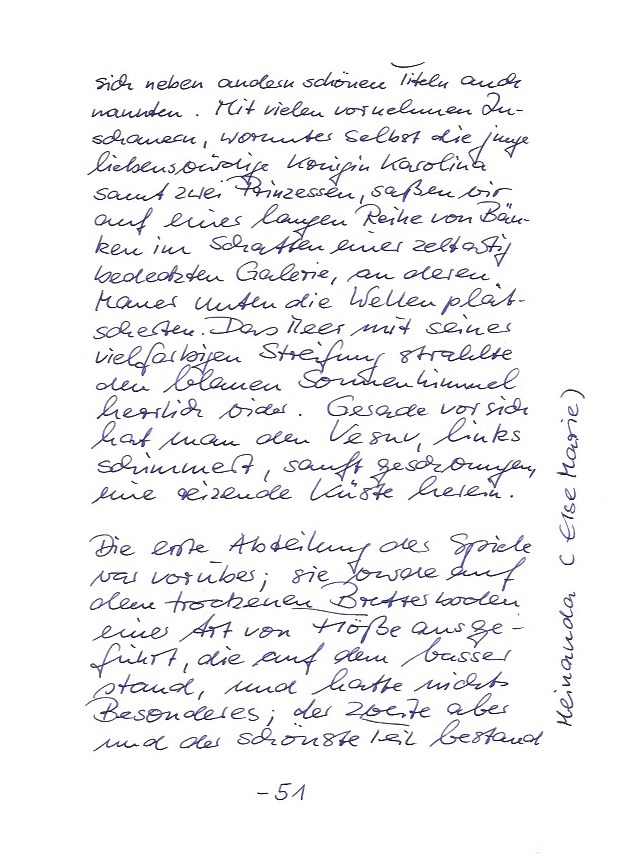 sich neben andern schönen Titeln auch
nannten. Mit vielen vornehmen Zu-
schauern, worunter selbst die junge
liebenswürdige Königin Karolina
samt zwei Prinzessen, saßen wir
auf einer langen Reihe von Bän-
ken im Schatten einer zeltartig
bedeckten Galerie, an deren
Mauer unten die Wellen plät-
scherten. Das Meer mit seiner
vielfarbigen Streifung strahlte
den blauen Sonnenhimmel
herrlich wider. Gerade vor sich
hat man den Vesuv, links
schimmert, sanft geschwungen,
eine reizende Küste herein.
Die erste Abteilung des Spiels
war vorüber; sie wurde auf
dem trockenen Bretterboden
einer Art von Flöße ausge-
führt, die auf dem Wasser
stand, und hatte nichts
Besonderes; der zweite aber
und der schönste Teil bestand
-51
Meinanda (Else Marie)